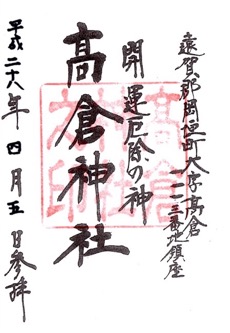 遠賀郡岡垣町大字高倉
一一一三番地鎮座
開運厄除の神
高倉神社
平成二十八年四月五日参拝
高倉神社印